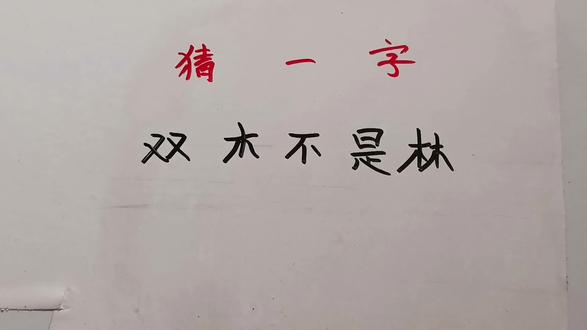 猜一字
双木不是林